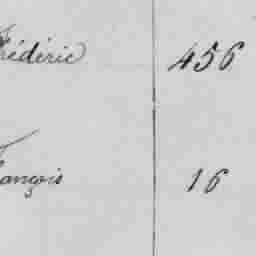 Frédéric 456
François 16